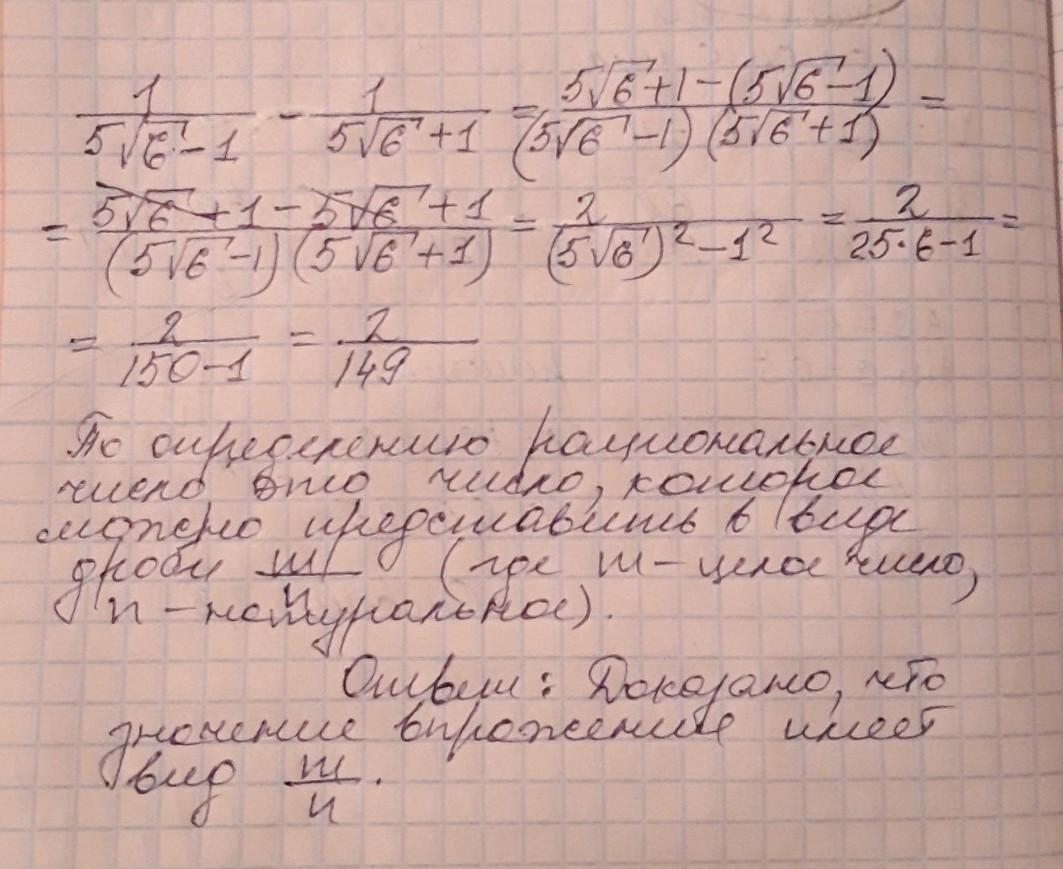 1/(5√6 - 1) - 1/(5√6 + 1) = (5√6 + 1 - (5√6 - 1))/((5√6 - 1)(5√6 + 1)) =
= (5√6 + 1 - 5√6 + 1)/((5√6 - 1)(5√6 + 1)) = 2/((5√6)² - 1²) = 2/(25·6 - 1) =
= 2/(150 - 1) = 2/149
По определению рациональное
число это число, которое
можно представить в виде
дроби m/n (где m - целое число,
n - натуральное).
Ответ: Доказано, что
значение выражения имеет
вид m/n.